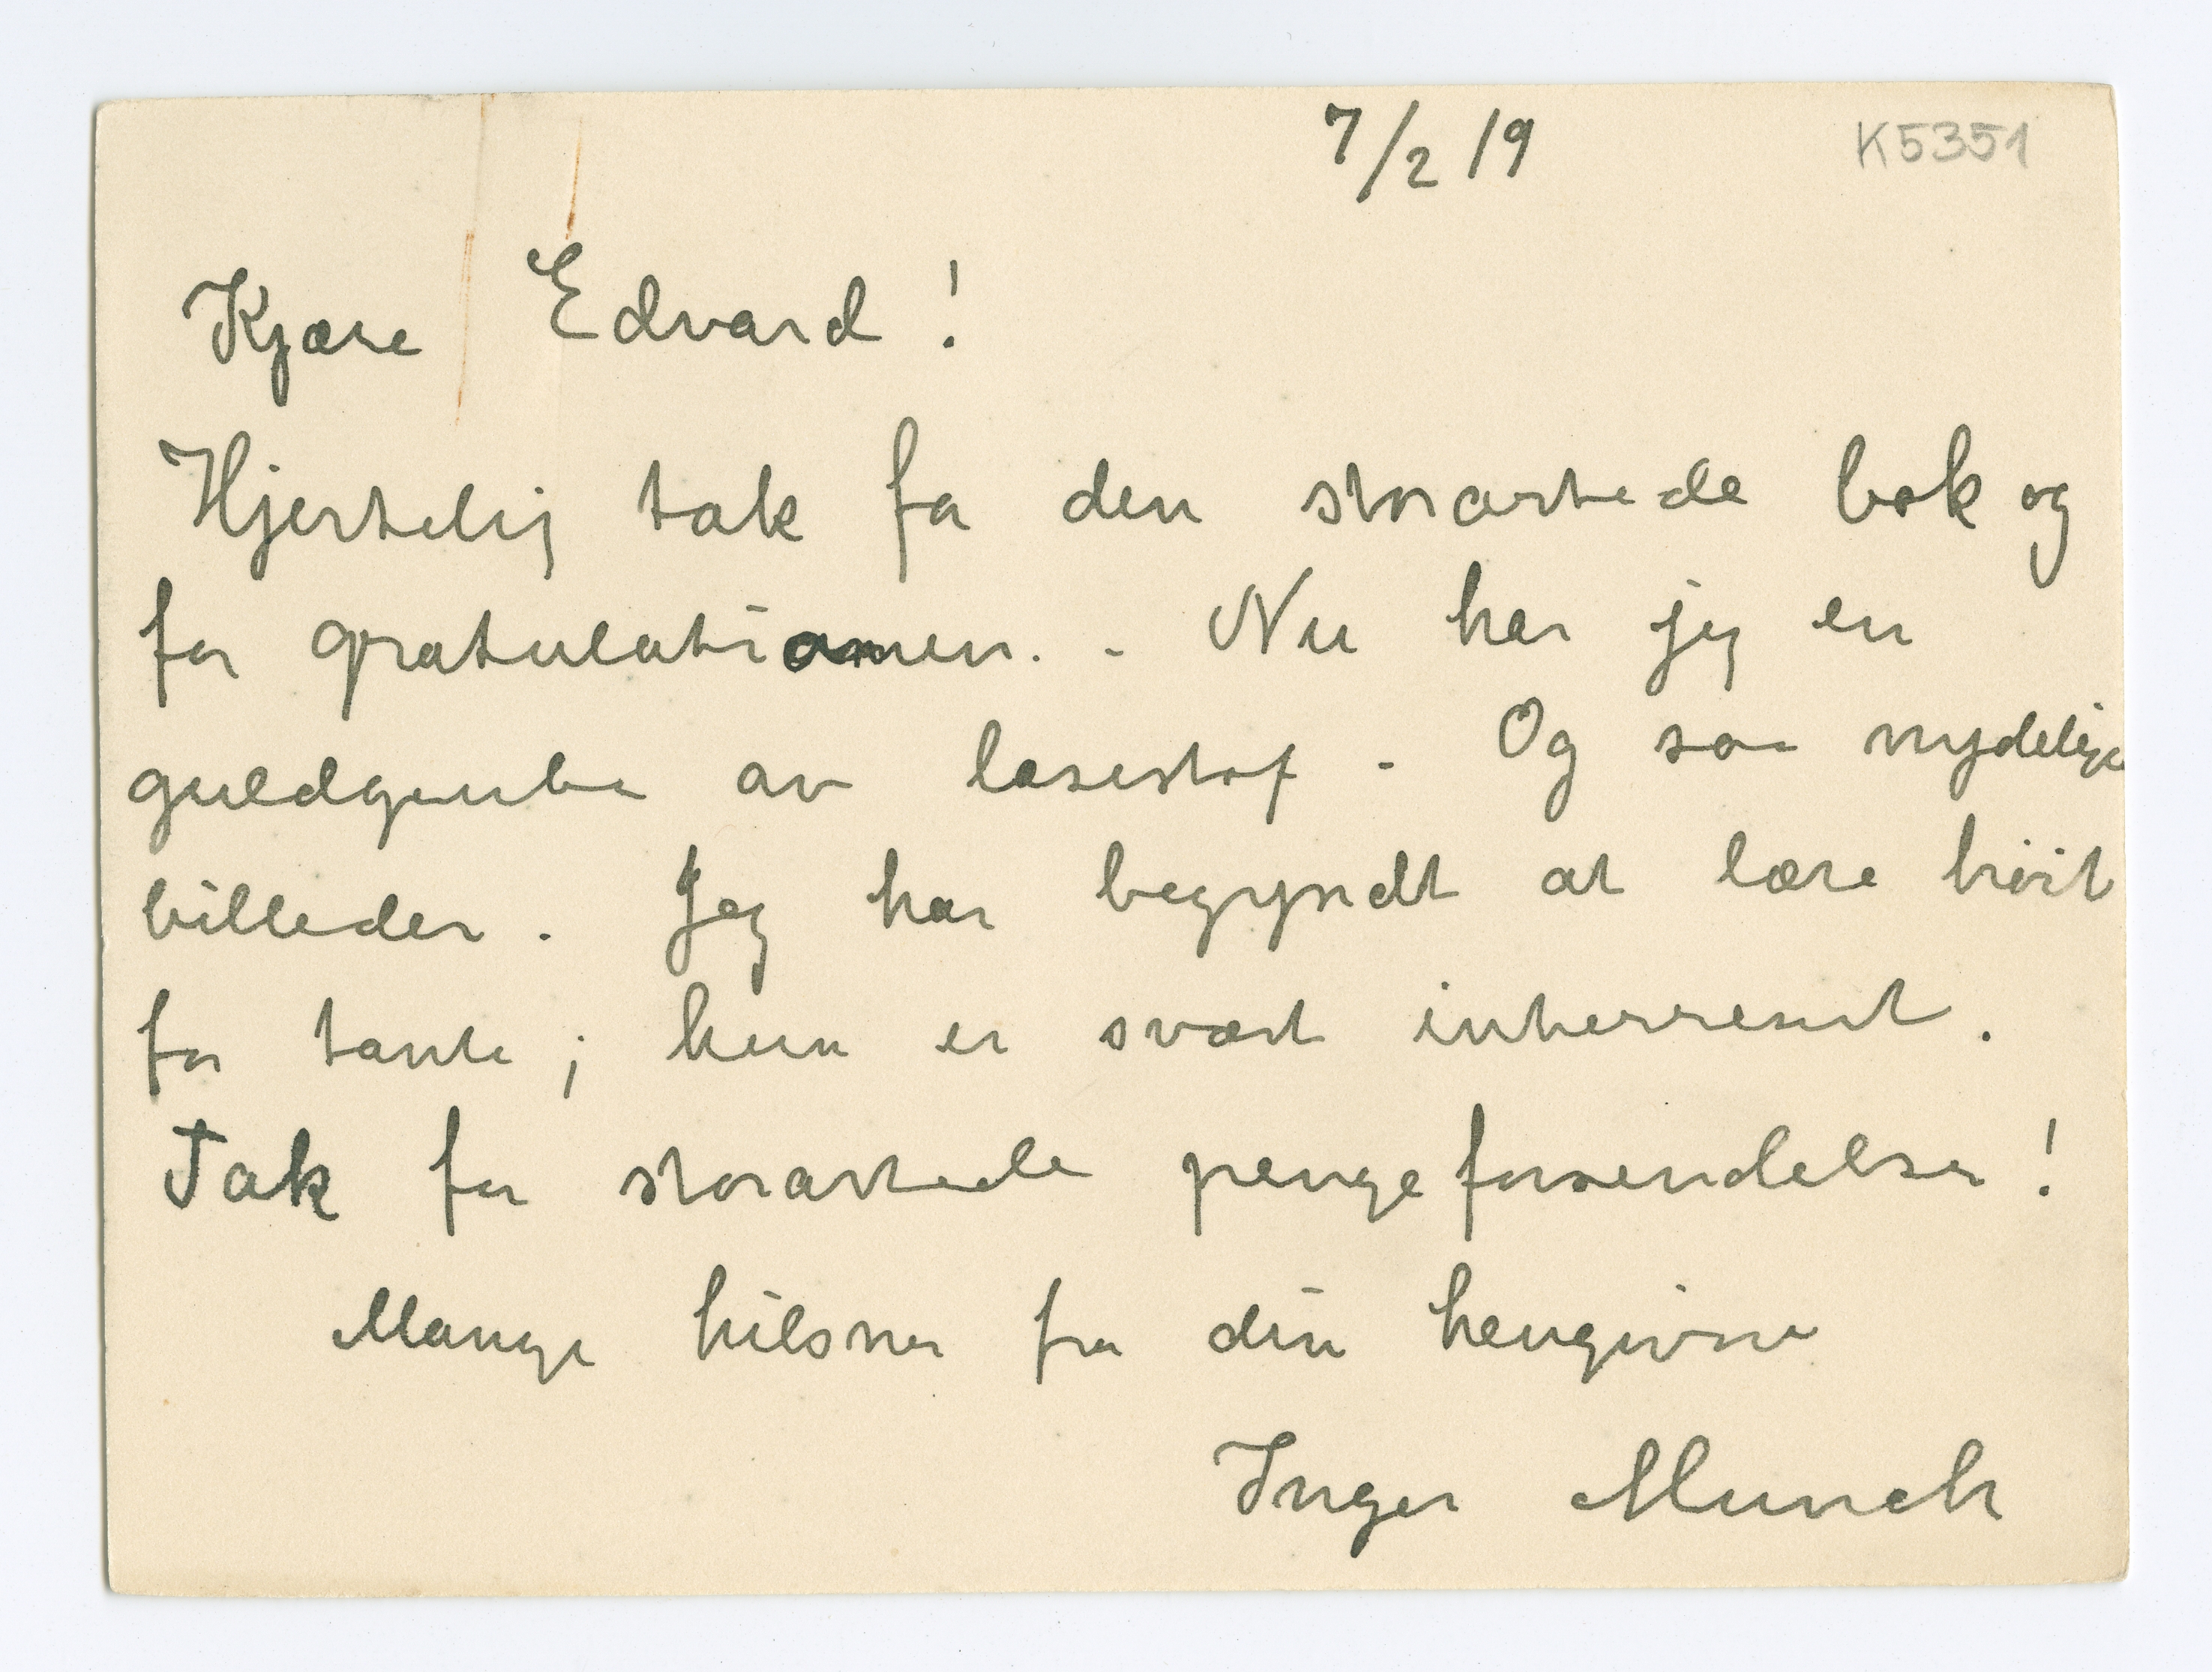 7/2 19
K5351
Kjære Edvard!
Hjertelig tak for den storartede bok og
for gratulationen. - Nu har jeg en
guldgrube av læsestof - Og saa nydelige
billeder. Jeg har begyndt at læse høit
for tante; hun er svært interresert.
Tak for storartede pengeforsendelser!
Mange hilsner fra din hengivne
Inger Munch